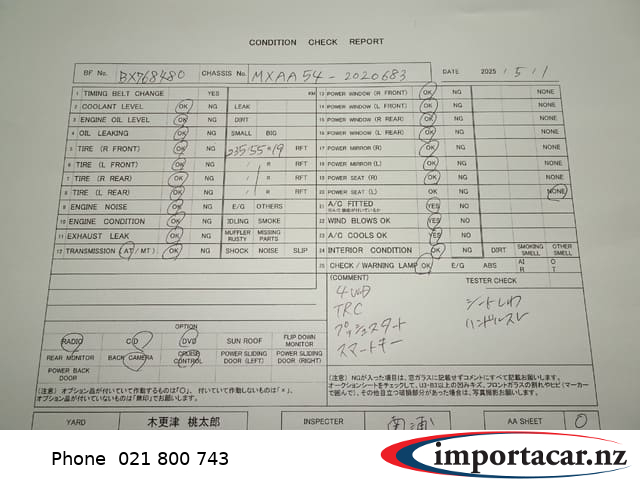 CONDITION CHECK REPORT
BF No. BX768480 CHASSIS No. MXAA54-2020683 DATE 2025 / 5 / 1
1 TIMING BELT CHANGE YES KM
2 COOLANT LEVEL OK NG LEAK
3 ENGINE OIL LEVEL OK NG DIRT
4 OIL LEAKING OK NG SMALL BIG
5 TIRE (R FRONT) OK NG 235/55R19 RFT
6 TIRE (L FRONT) OK NG / R RFT
7 TIRE (R REAR) OK NG / R RFT
8 TIRE (L REAR) OK NG / R RFT
9 ENGINE NOISE OK NG E/G OTHERS
10 ENGINE CONDITION OK NG IDLING SMOKE
11 EXHAUST LEAK OK NG MUFFLER RUSTY MISSING PARTS
12 TRANSMISSION (AT/MT) OK NG SHOCK NOISE SLIP
13 POWER WINDOW (R FRONT) OK NG NONE
14 POWER WINDOW (L FRONT) OK NG NONE
15 POWER WINDOW (R REAR) OK NG NONE
16 POWER WINDOW (L REAR) OK NG NONE
17 POWER MIRROR (R) OK NG NONE
18 POWER MIRROR (L) OK NG NONE
19 POWER SEAT (R) OK NG NONE
20 POWER SEAT (L) OK NG NONE
21 A/C FITTED YES NO
22 WIND BLOWS OK YES NO
23 A/C COOLS OK YES NO
24 INTERIOR CONDITION OK NG DIRT SMOKING SMELL OTHER SMELL
25 CHECK / WARNING LAMP OK E/G ABS AIR OT
(COMMENT) TESTER CHECK
4WD
TRC
プッシュスタート
スマートキー
シートしわ
ハンドルスレ
OPTION
RADIO CD DVD SUN ROOF FLIP DOWN MONITOR
REAR MONITOR BACK CAMERA CRUISE CONTROL POWER SLIDING DOOR (LEFT) POWER SLIDING DOOR (RIGHT)
POWER BACK DOOR
(注意) オプション品が付いていて作動するものは「○」、付いていて作動しないものは「×」、
オプション品が付いていないものは「無印」でお願いします。
(注意) NGが入った項目は、窓ガラスに記載せずコメントにすべて記載お願いします。
オークションシートをチェックして、U3・B3以上の凹みキズ、フロントガラスの割れやヒビ(マーカー
で囲んで)、その他目立つ破損部分があった場合は、写真撮影お願いします。
YARD 木更津 桃太郎 INSPECTER AA SHEET ○
Phone 021 800 743
importacar.nz